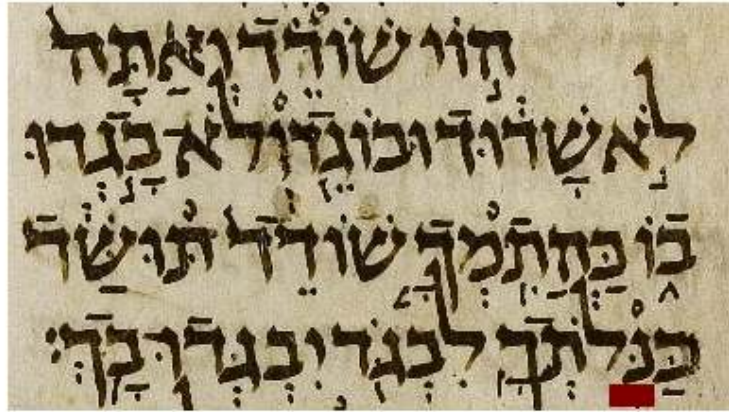 הוֹי שׁוֹדֵד וְאַתָּה
לֹא שָׁדוּד וּבוֹגֵד וְלֹא־בָגְדוּ
בוֹ כַּהֲתִמְךָ שׁוֹדֵד תּוּשַּׁד
כַּנְּלֹתְךָ לִבְגֹּד יִבְגְּדוּ בָךְ׃